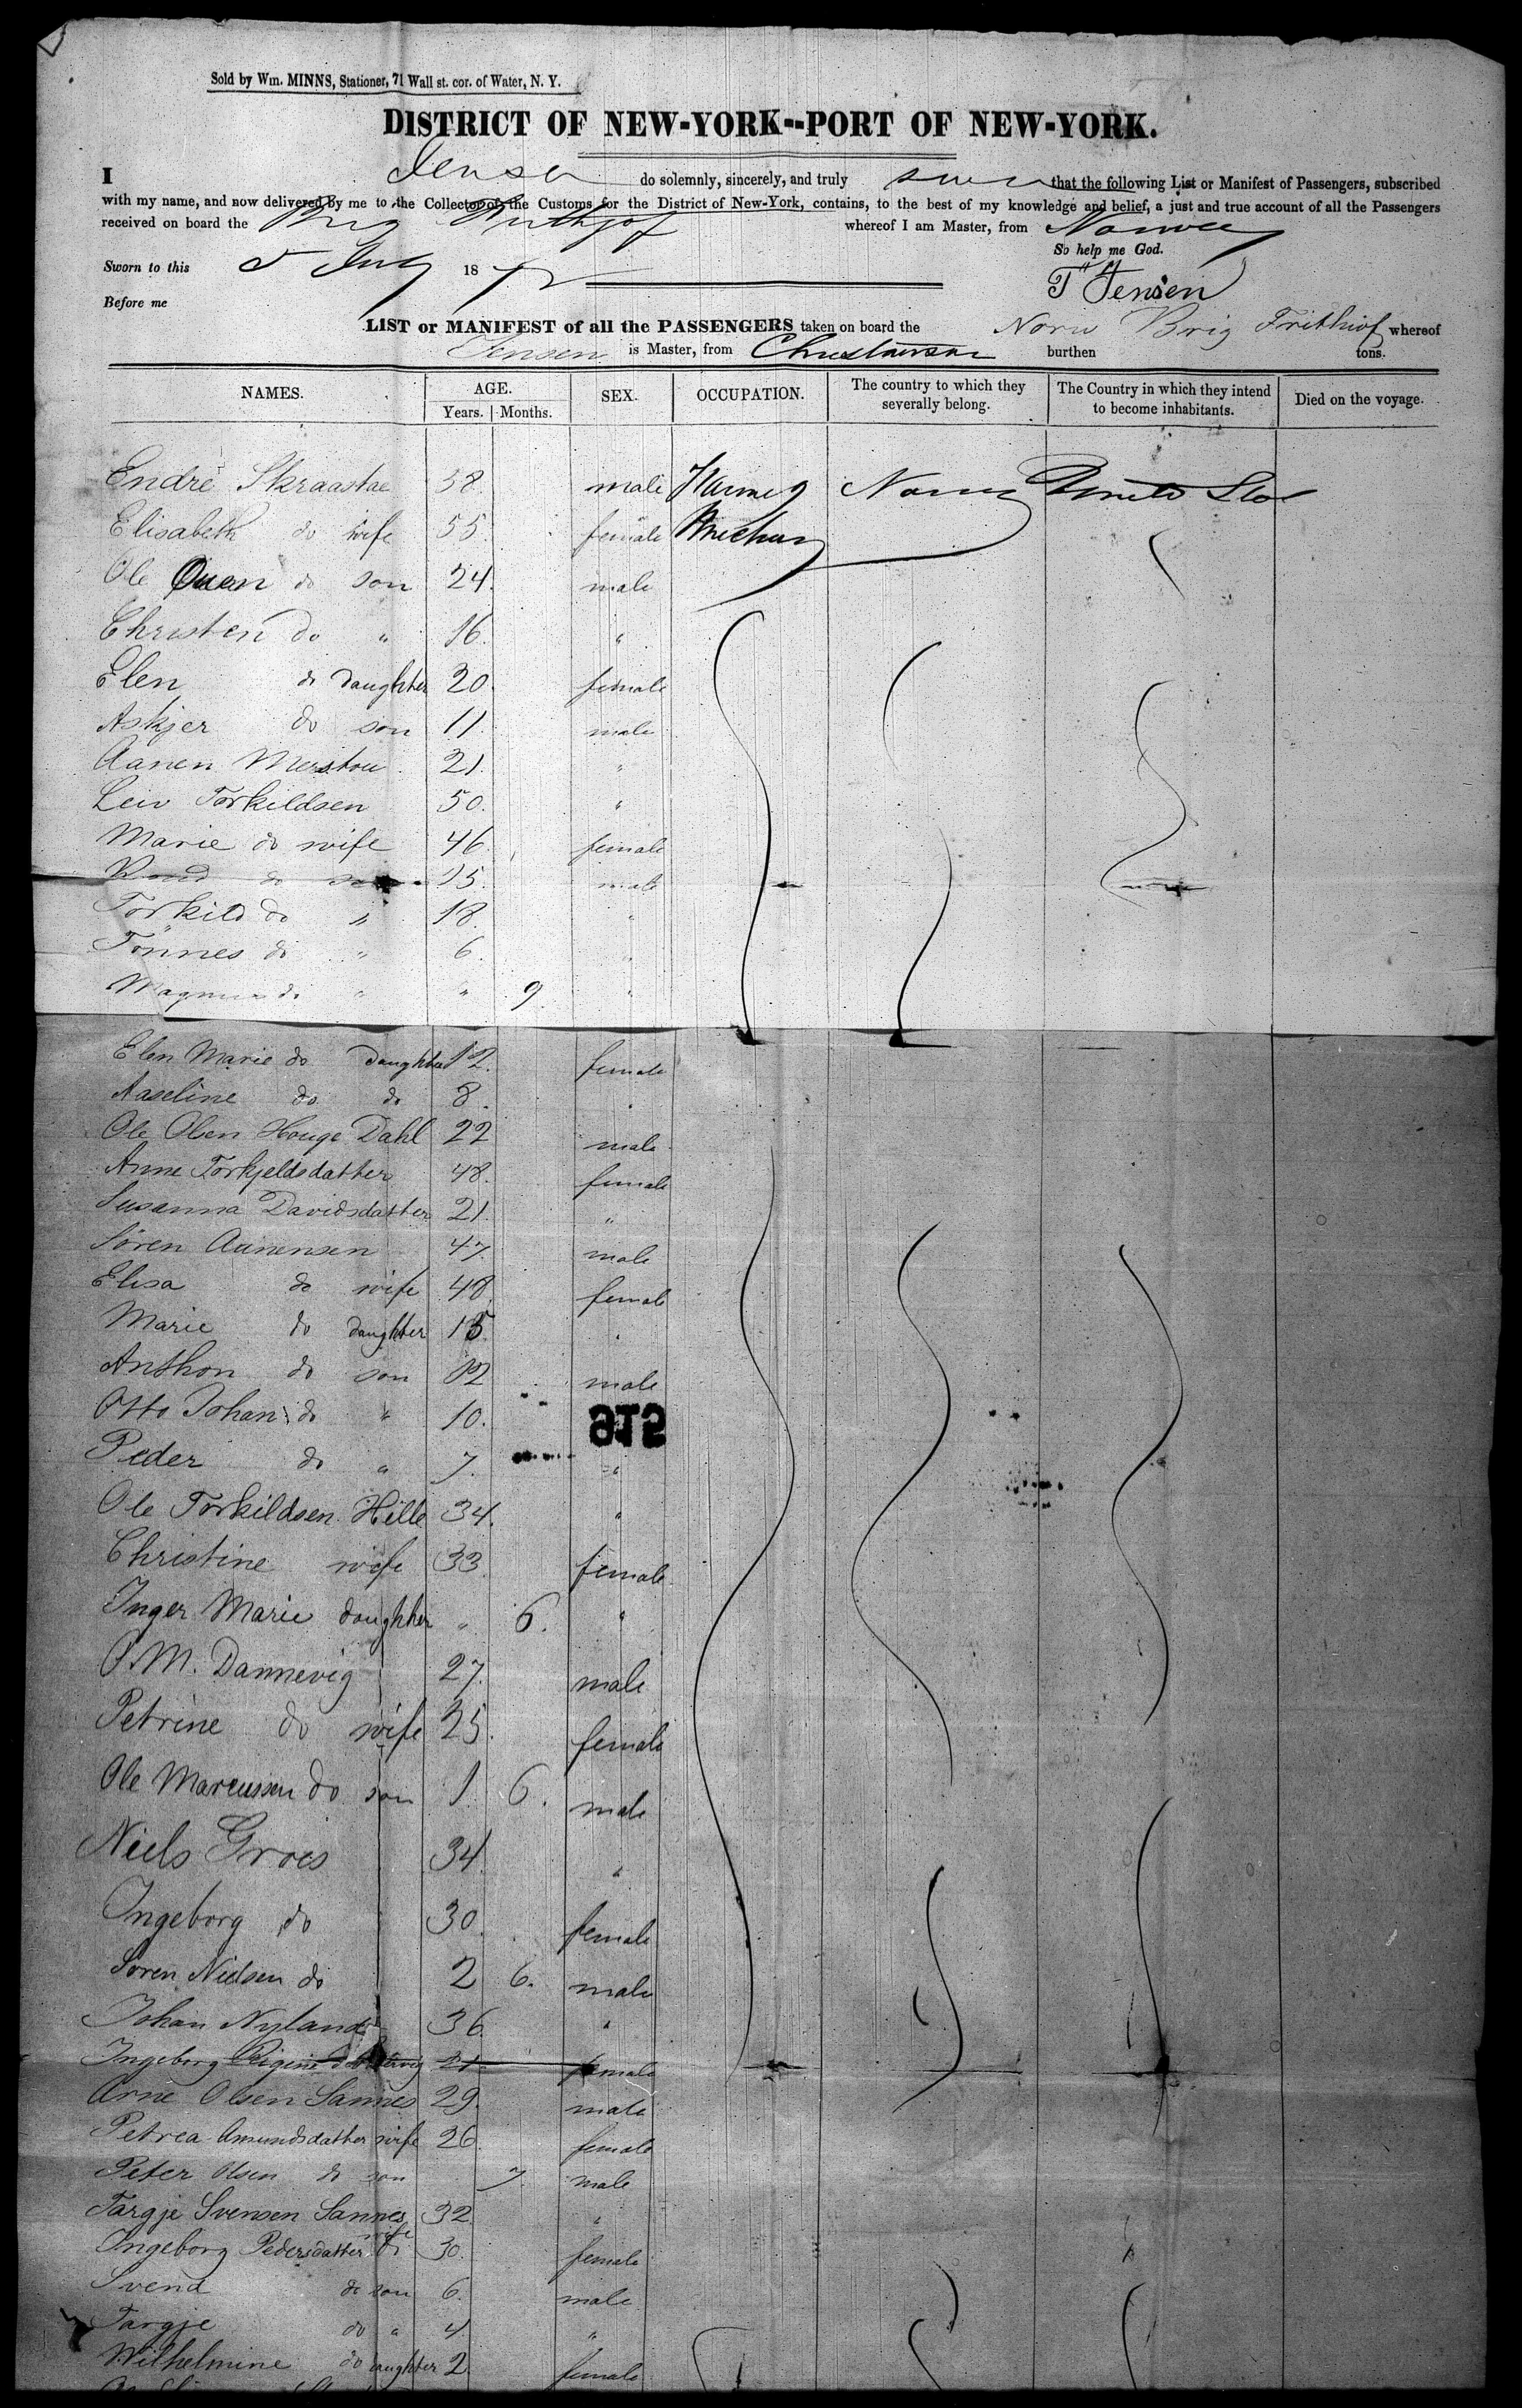 Sold by Wm. MINNS, Stationer, 71 Wall st. cor. of Water, N. Y.
DISTRICT OF NEW-YORK--PORT OF NEW-YORK.
I Jensen do solemnly, sincerely, and truly swear that the following List or Manifest of Passengers, subscribed
with my name, and now delivered by me to the Collector of the Customs for the District of New-York, contains, to the best of my knowledge and belief, a just and true account of all the Passengers
received on board the Brig whereof I am Master, from Norway
So help me God.
Sworn to this 5 July 18
T Jensen
Before me
LIST or MANIFEST of all the PASSENGERS taken on board the Norw Brig Frithiof whereof
Jensen is Master, from burthen tons.
NAMES. AGE. SEX. OCCUPATION. The country to which they severally belong. The Country in which they intend to become inhabitants. Died on the voyage.
Years. Months.
Endre Skraastae 38. male Norway United Sta
Elisabeth do wife 55. female
Ole do son 24. male
Christen do " 16. "
Elen do daughter 20. female
Askjer do son 11. male
Aanen 21. "
Leiv Torkildsen 50. "
Marie do wife 46. female
do 15. male
Torkild do " 18. "
Tönnes do " 6. "
Magnus do " " 9. "
Elen Marie do daughter 12. female
Aaseline do do 8. "
Ole Olsen Houge Dahl 22 male
Anne Torkjeldsdatter 48. female
Susanna Davidsdatter 21. "
Sören Aanensen 47. male
Elisa do wife 48. female
Marie do daughter 15. "
Anthon do son 12 male
Otto Johan do " 10.
915
Peder do " 7. "
Ole Torkildsen Hille 34. "
Christine wife 33 female
Inger Marie daughter " 6. "
O. M. Dannevig 27. male
Petrine do wife 25. female
Ole Marcussen do son 1 6. male
Niels Groes 34. "
Ingeborg do 30. female
Sören Nielsen do 2 6. male
Johan Nyland 36. "
Ingeborg 21 female
Arne Olsen Sannes 29. male
Petrea Amundsdatter wife 26 female
Peter Olsen do son 7. male
Targje Svensen Sannes 32 "
Ingeborg Pedersdatter do wife 30. female
Svend do son 6. male
Targje do " 4. "
Wilhelmine do daughter 2. female